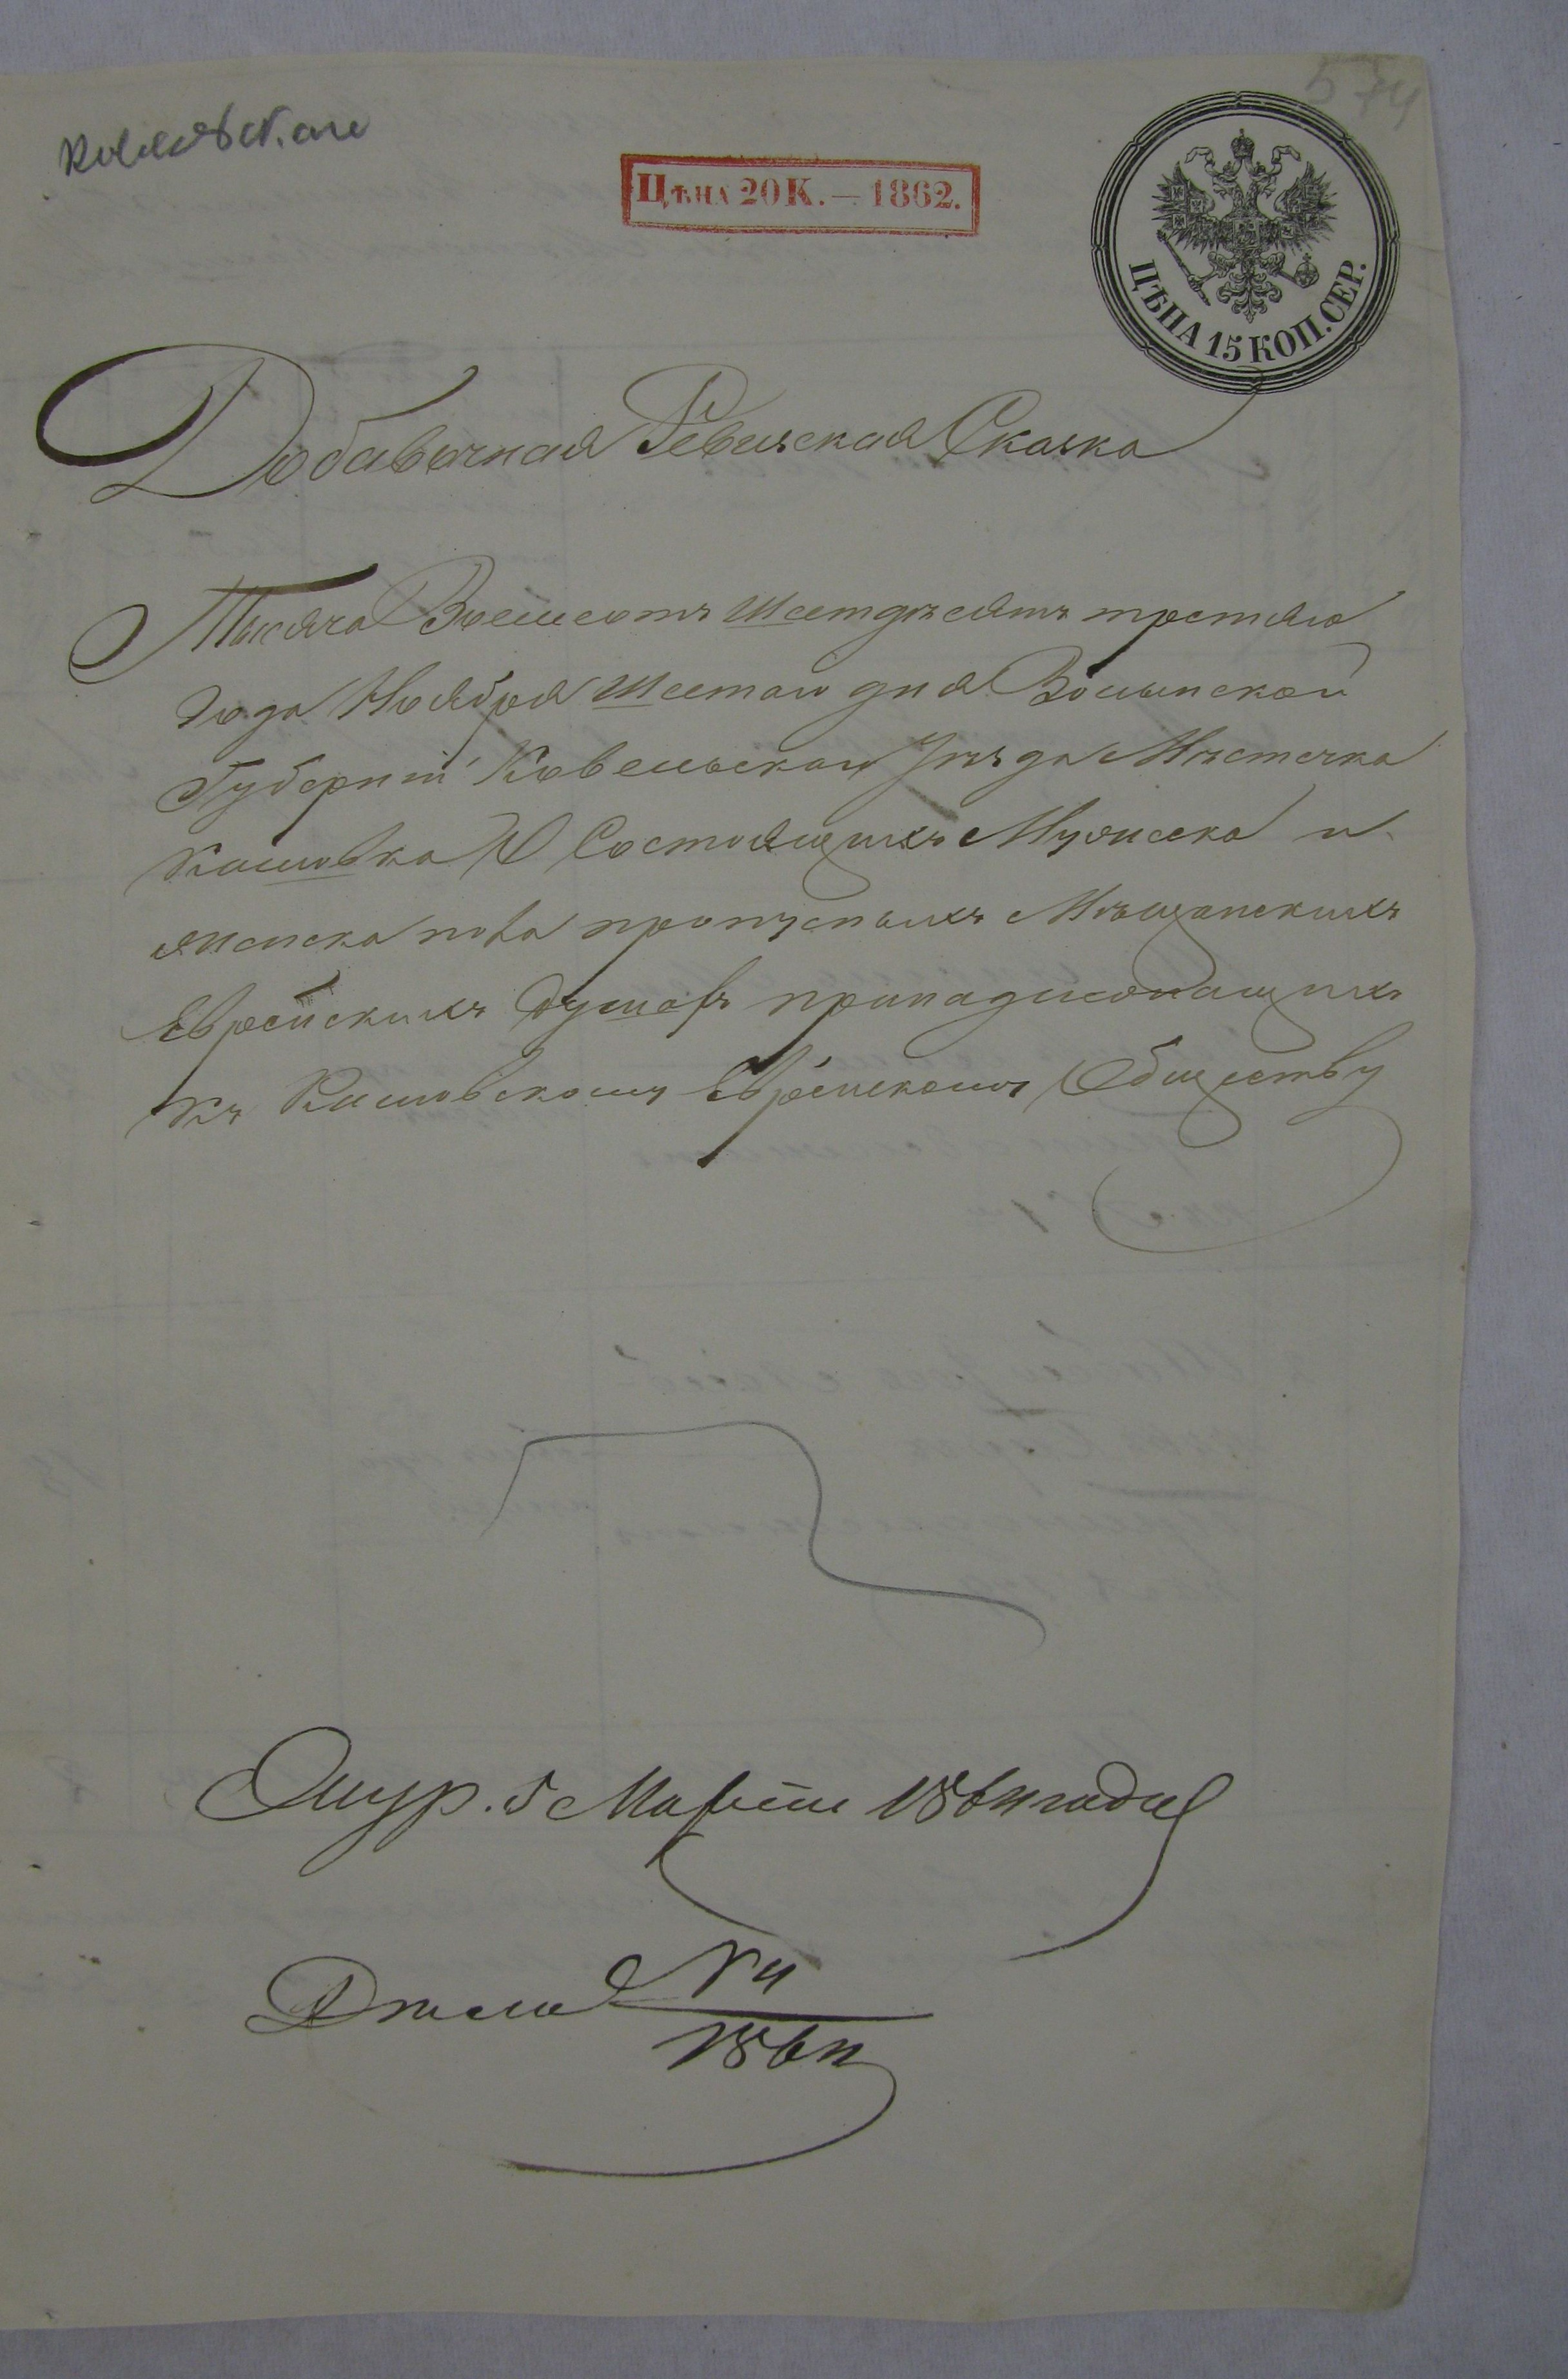 574
Цѣна 20 К. — 1862.
ЦѢНА 15 КОП. СЕР.
Добавочная Ревизская Сказка
Тысяча Восемсотъ Шестдѣсятъ третяго
Года Ноября Шестаго дня Волынской
Губерніи Ковельскаго Уѣзда Мѣстечка
Кашовка О Состоящихъ Мужеска и
женска пола пропусныхъ Мѣщанскихъ
Еврейскихъ Душахъ принадлежащихъ
къ Кашовскому Еврейскому Обществу
5 Марта 1864 года
Дѣло № 4
1864